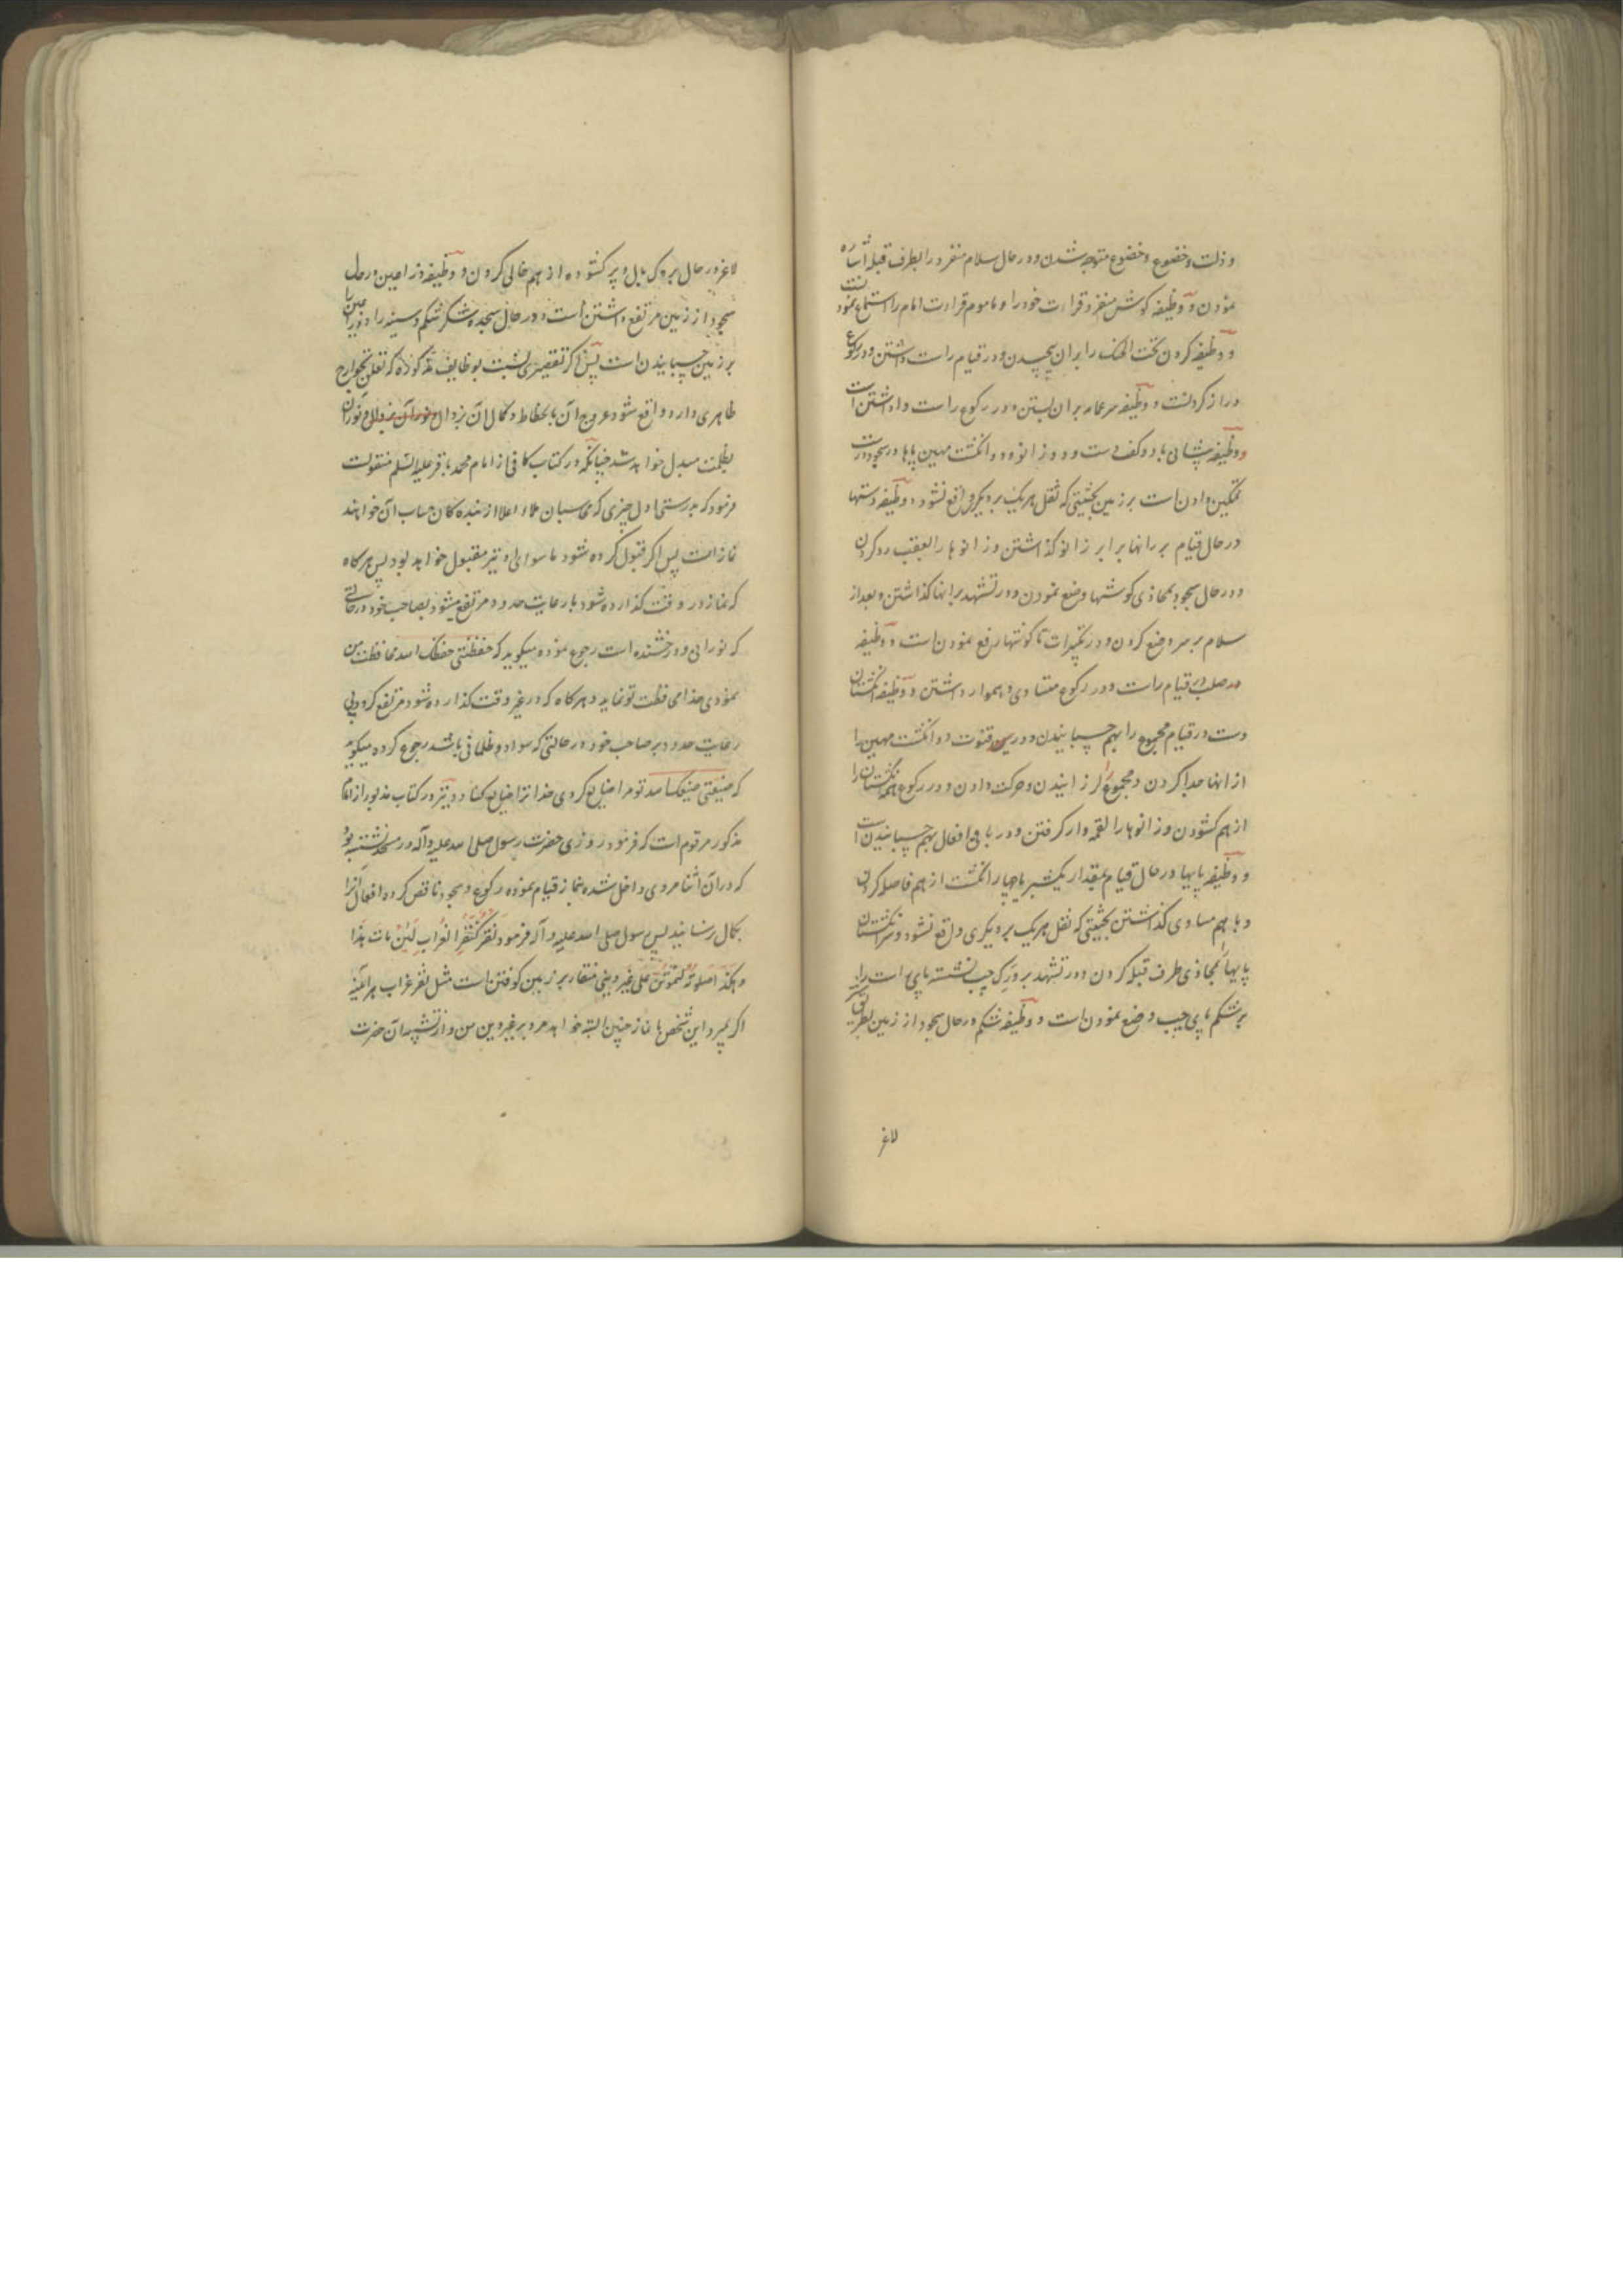 و ذلت و خضوع و خشوع متوجه شدن و در حال سلام منفرد را بطرف قبله اشاره
نمودن و وظیفه کوش منفرد قراءت خود را و ماموم قراءت امام را استماع نمودنست
و وظیفه کردن تحت الحنک را بران پیچیدن و در قیام راست داشتن و در رکوع
دراز کردنست و وظیفه سر عمامه بران بستن و در رکوع راست واداشتن است
و وظیفه پیشانی با دو کف دست و دو زانو و دو انکشت مهین پاها در سجود درست
تمکین دادن است بر زمین بحیثیتی که ثقل هر یک بر دیگری واقع نشود و وظیفه دستها
در حال قیام بر رانها برابر زانو کذاشتن و زانوها را بعقب رد کردن
و در حال سجود بمحاذی کوشها وضع نمودن و در تشهد برانها کذاشتن و بعد از
سلام بر سر وضع کردن و در تکبیرات تا کوشها رفع نمودن است و وظیفه
صلب در قیام راست و در رکوع متساوی و هموار داشتن و وظیفه انکشتان
دست در قیام مجموع را بهم چسبانیدن و در قنوت دو انکشت مهین را
از انها جدا کردن و مجموع را لرزانیدن و حرکت دادن و در رکوع همه انکشتان را
از هم کشودن و زانوها را لقمه وار کرفتن و در باقی افعال بهم چسبانیدن است
و وظیفه پایها در حال قیام بمقدار یکشبر یا چهار انکشت از هم فاصله کردن
و با هم مساوی کذاشتن بحیثیتی که ثقل هر یک بر دیگری واقع نشود و سر انکشتان
پایها بمحاذی طرف قبله کردن و در تشهد بر ورک چپ نشسته پای راست را
بر شکم پای چپ وضع نمودن است و وظیفه شکم در حال سجود از زمین بطریق شتر
لاغر
لاغر در حال بروک بال و پر کشوده از هم خالی کردن و وظیفه ذراعین در حال
سجود از زمین مرتفع داشتن است و در حال سجده شکر شکم و سینه را و ذراعین را
بر زمین چسبانیدن است پس اکر تقصیری نسبت بوظایف مذکوره که تعلق بجوارح
ظاهری دارد واقع شود عروج آن بانحطاط و کمال آن بزوال و نورآن
بظلمت مبدل خواهد شد چنانکه در کتاب کافی از امام محمد باقر علیه السلم منقولست
فرمود که بدرستی اول چیزی که محاسبان ملاء اعلا از بنده کان حساب آن خواهند
نماز است پس اکر قبول کرده شود ما سوای او نیز مقبول خواهد بود پس هر کاه
که نماز در وقت کذارده شود با رعایت حدود مرتفع میشود بصاحب خود در حالتی
که نورانی و درخشنده است رجوع نموده میکوید که حفظتنی حفظک الله محافظت من
نمودی خدا محافظت تو نماید و هر کاه که در غیر وقت کذارده شود مرتفع کردد بی
رعایت حدود بر صاحب خود در حالتی که سواد و ظلمانی باشد رجوع کرده میکوید
که ضیعتنی ضیعک الله تو مرا ضایع کردی خدا ترا ضایع کناد و نیز در کتاب مذبور از امام
مذکور مرقوم است که فرمود روزی حضرت رسول صلی الله علیه و آله در مسجد نشسته بود
که در آن اثنا مردی داخل شده بنماز قیام نموده رکوع و سجود ناقص کرده افعال آنرا
بکمال رسانید پس رسول صلی الله علیه و آله فرمود نَقَرَ کَنَقْرِ الغُرابِ لَئِن مات هذا
و هکذا صلوته لیموتن علی غیر دینی منقار بر زمین کوفتن است مثل نقر غراب هر آینه
اکر بمیرد این شخص با نماز چنین البته خواهد مرد بر غیر دین من و از تشبیه آن حضرت